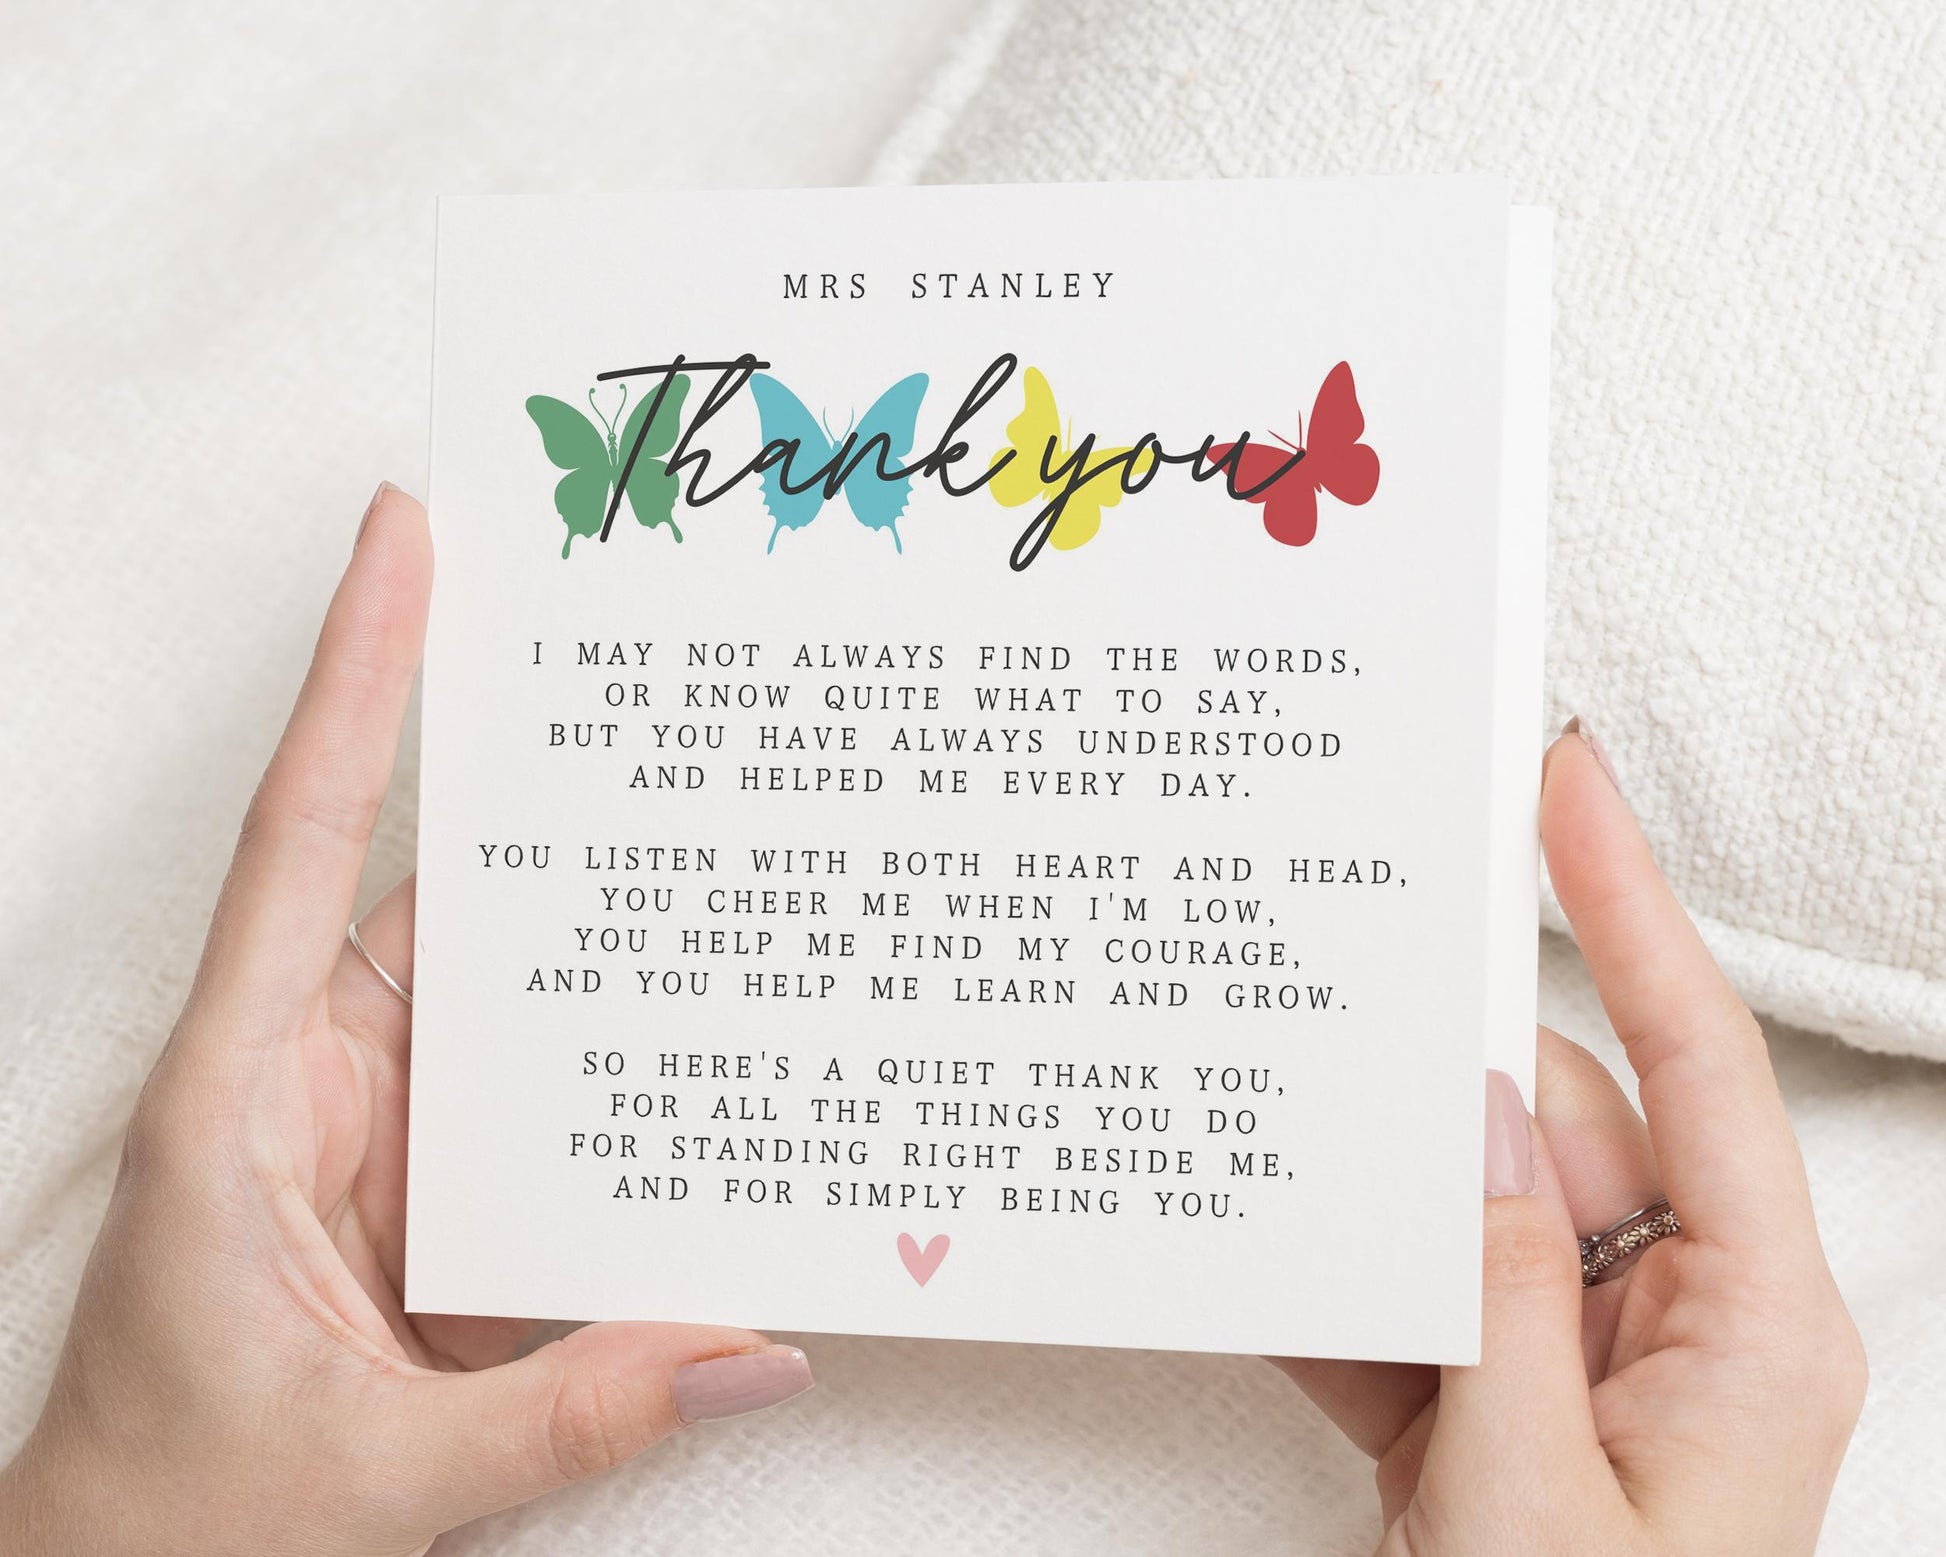 MRS STANLEY
Thank you
I MAY NOT ALWAYS FIND THE WORDS,
OR KNOW QUITE WHAT TO SAY,
BUT YOU HAVE ALWAYS UNDERSTOOD
AND HELPED ME EVERY DAY.
YOU LISTEN WITH BOTH HEART AND HEAD,
YOU CHEER ME WHEN I'M LOW,
YOU HELP ME FIND MY COURAGE,
AND YOU HELP ME LEARN AND GROW.
SO HERE'S A QUIET THANK YOU,
FOR ALL THE THINGS YOU DO
FOR STANDING RIGHT BESIDE ME,
AND FOR SIMPLY BEING YOU.